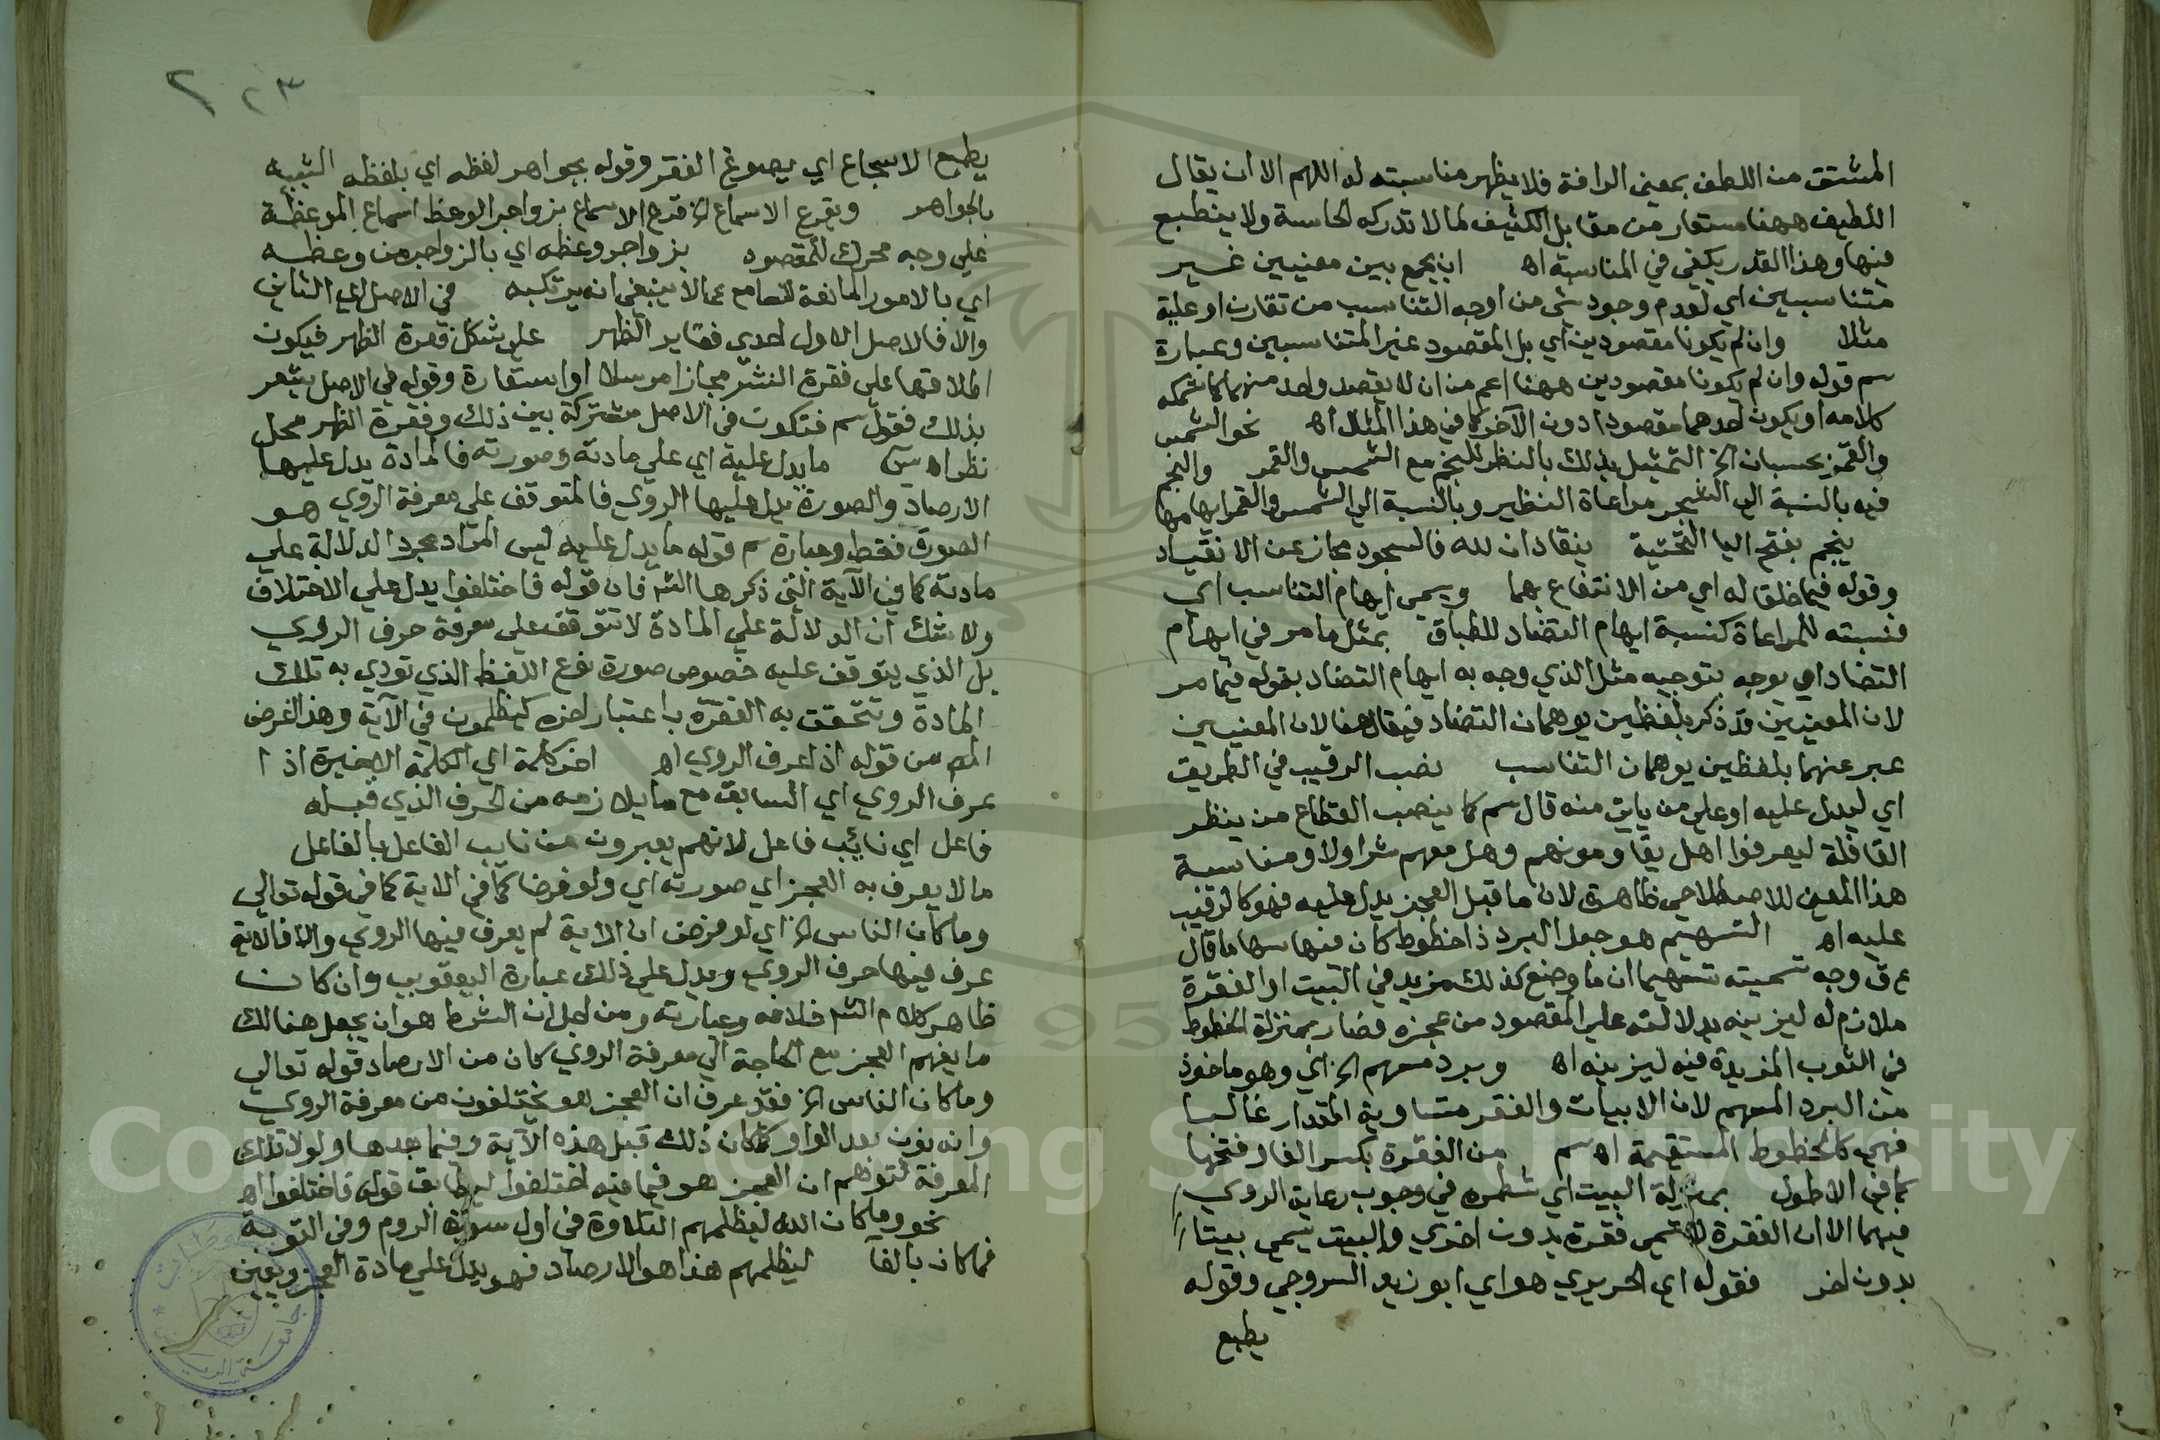 المشتق من اللطف بمعني الرافة فلا يظهر مناسبته له اللهم الا ان يقال
اللطيف ههنا مستعار من مقابل الكثيف لما لا تدركه الحاسة ولا ينطبع
فيها وهذا القدر يكفي في المناسبة اه ان يجمع بين معنيين غير
متناسبين اي لعدم وجود شي من اوجه التناسب من تقارن او علية
مثلا وان لم يكونا مقصودين اي بل المقصود غير المتناسبين وعبارة
سم قوله وان لم يكونا مقصودين ههنا اعم من ان لا يقصد واحد منهما كما شمله
كلامه او يكون احدهما مقصودا دون الآخر كما في هذا المثال اه نحو الشمس
والقمر بحسبان الخ التمثيل بذلك بالنظر للنجم مع الشمس والقمر والنجم
فيه بالنسبة الي الشجر مراعاة النظير وبالنسبة الي الشمس والقمر ايهامها
ينجم بفتح اليا التحتية ينقادان لله فالسجود مجاز عن الانقياد
وقوله فيما خلقا له اي من الانتفاع بهما ويسمي ايهام التناسب اي
فنسبته للمراعاة كنسبة ايهام التضاد للطباق بمثل ما مر في ايهام
التضاد اي يوجه بتوجيه مثل الذي وجه به ايهام التضاد بقوله فيما مر
لان المعنيين قد ذكر بلفظين يوهمان التضاد فيقال هنا لان المعنيين
عبر عنهما بلفظين يوهمان التناسب نصب الرقيب في الطريق
اي ليدل عليه او علي من ياتي منه قال سم كما ينصب القطاع من ينظر
القافلة ليعرفوا اهل يقاومونهم وهل معهم شي اولا ومناسبة
هذا المعني للاصطلاحي ظاهرة لان ما قبل العجز يدل عليه فهو كالرقيب
عليه اه التسهيم هو جعل البرد ذا خطوط كان فيها سهاما قال
ع ق وجه تسميته تسهيما ان ما وضع كذلك مزيد في البيت او الفقرة
ملازم له ليزينه بدلالته علي المقصود من عجزه فصار بمنزلة الخطوط
في الثوب المزيدة فيه ليزينه اه وبرد مسهم الخ اي وهو ماخوذ
من البرد المسهم لان الابيات والفقر متساوية المقدار غالبا
فهي كالخطوط المستقيمة اه سم من الفقرة بكسر الفا وفتحها
كما في الاطول بمنزلة البيت اي شطره في وجوب رعاية الروي
فيهما الا ان الفقرة لا تسمي فقرة بدون اخري والبيت يسمي بيتا
بدون اخر فقوله اي الحريري هو اي ابو زيد السروجي وقوله
يطبع
٢ ٢٣
يطبع الاسجاع اي يصوغ الفقر وقوله بجواهر لفظه اي بلفظه الشبيه
بالجواهر ويقرع الاسماع الخ قرع الاسماع بزواجر الوعظ اسماع الموعظة
علي وجه محرك للمقصود بزواجر وعظه اي بالزواجر من وعظه
اي بالامور المانعة للسامع عما لا ينبغي انه يرتكبه في الاصل اي الثاني
والا فالاصل الاول احدي فقاير الظهر علي شكل فقرة الظهر فيكون
اطلاقها علي فقرة النثر مجازا مرسلا او استعارة وقوله في الاصل يشعر
بذلك فقول سم فتكون في الاصل مشتركة بين ذلك وفقرة الظهر محل
نظر اه يس ما يدل علية اي علي مادته وصورته فالمادة يدل عليها
الارصاد والصورة يدل عليها الروي فالمتوقف علي معرفة الروي هو
الصورة فقط وعبارة سم قوله ما يدل عليه ليس المراد مجرد الدلالة علي
مادته كما في الآية التي ذكرها الش فان قوله فاختلفوا يدل علي الاختلاف
ولا شك ان الدلالة علي المادة لا تتوقف علي معرفة حرف الروي
بل الذي يتوقف عليه خصوص صورة نوع اللفظ الذي تودي به تلك
المادة وتتحقق به الفقرة باعتبار اخره كيظلمون في الآية وهذا الغرض
المص من قوله اذا عرف الروي اه اخر كلمة اي الكلمة الاخيرة اذا
عرف الروي اي السابق مع ما يلازمه من الحرف الذي قبله
فاعل اي نائب فاعل لانهم يعبرون عن نايب الفاعل بالفاعل
ما لا يعرف به العجز اي صورته اي ولو فرضا كما في الاية كما في قوله تعالي
وما كان الناس الخ اي لو فرض ان الاية لم يعرف فيها الروي والا فالاية
عرف فيها حرف الروي ويدل علي ذلك عبارة اليعقوبي وان كان
ظاهر كلام الش خلافه وعبارته ومن اجل ان الشرط هو ان يجعل هنالك
ما يفهم العجز مع الحاجة الي معرفة الروي كان من الارصاد قوله تعالي
وما كان الناس الخ فقد عرف ان العجز هو يختلفون من معرفة الروي
وانه نون بعد الواو كما كان ذلك قبل هذه الآية وفيما بعدها ولولا تلك
المعرفة لتوهم ان العجز هو فيما فيه اختلفوا ليطابق قوله فاختلفوا اه
نحو وما كان الله ليظلمهم التلاوة في اول سورة الروم وفي التوبة
فما كان بالفآ ليظلمهم هذا هو الارصاد فهو يدل علي مادة العجز ويعين